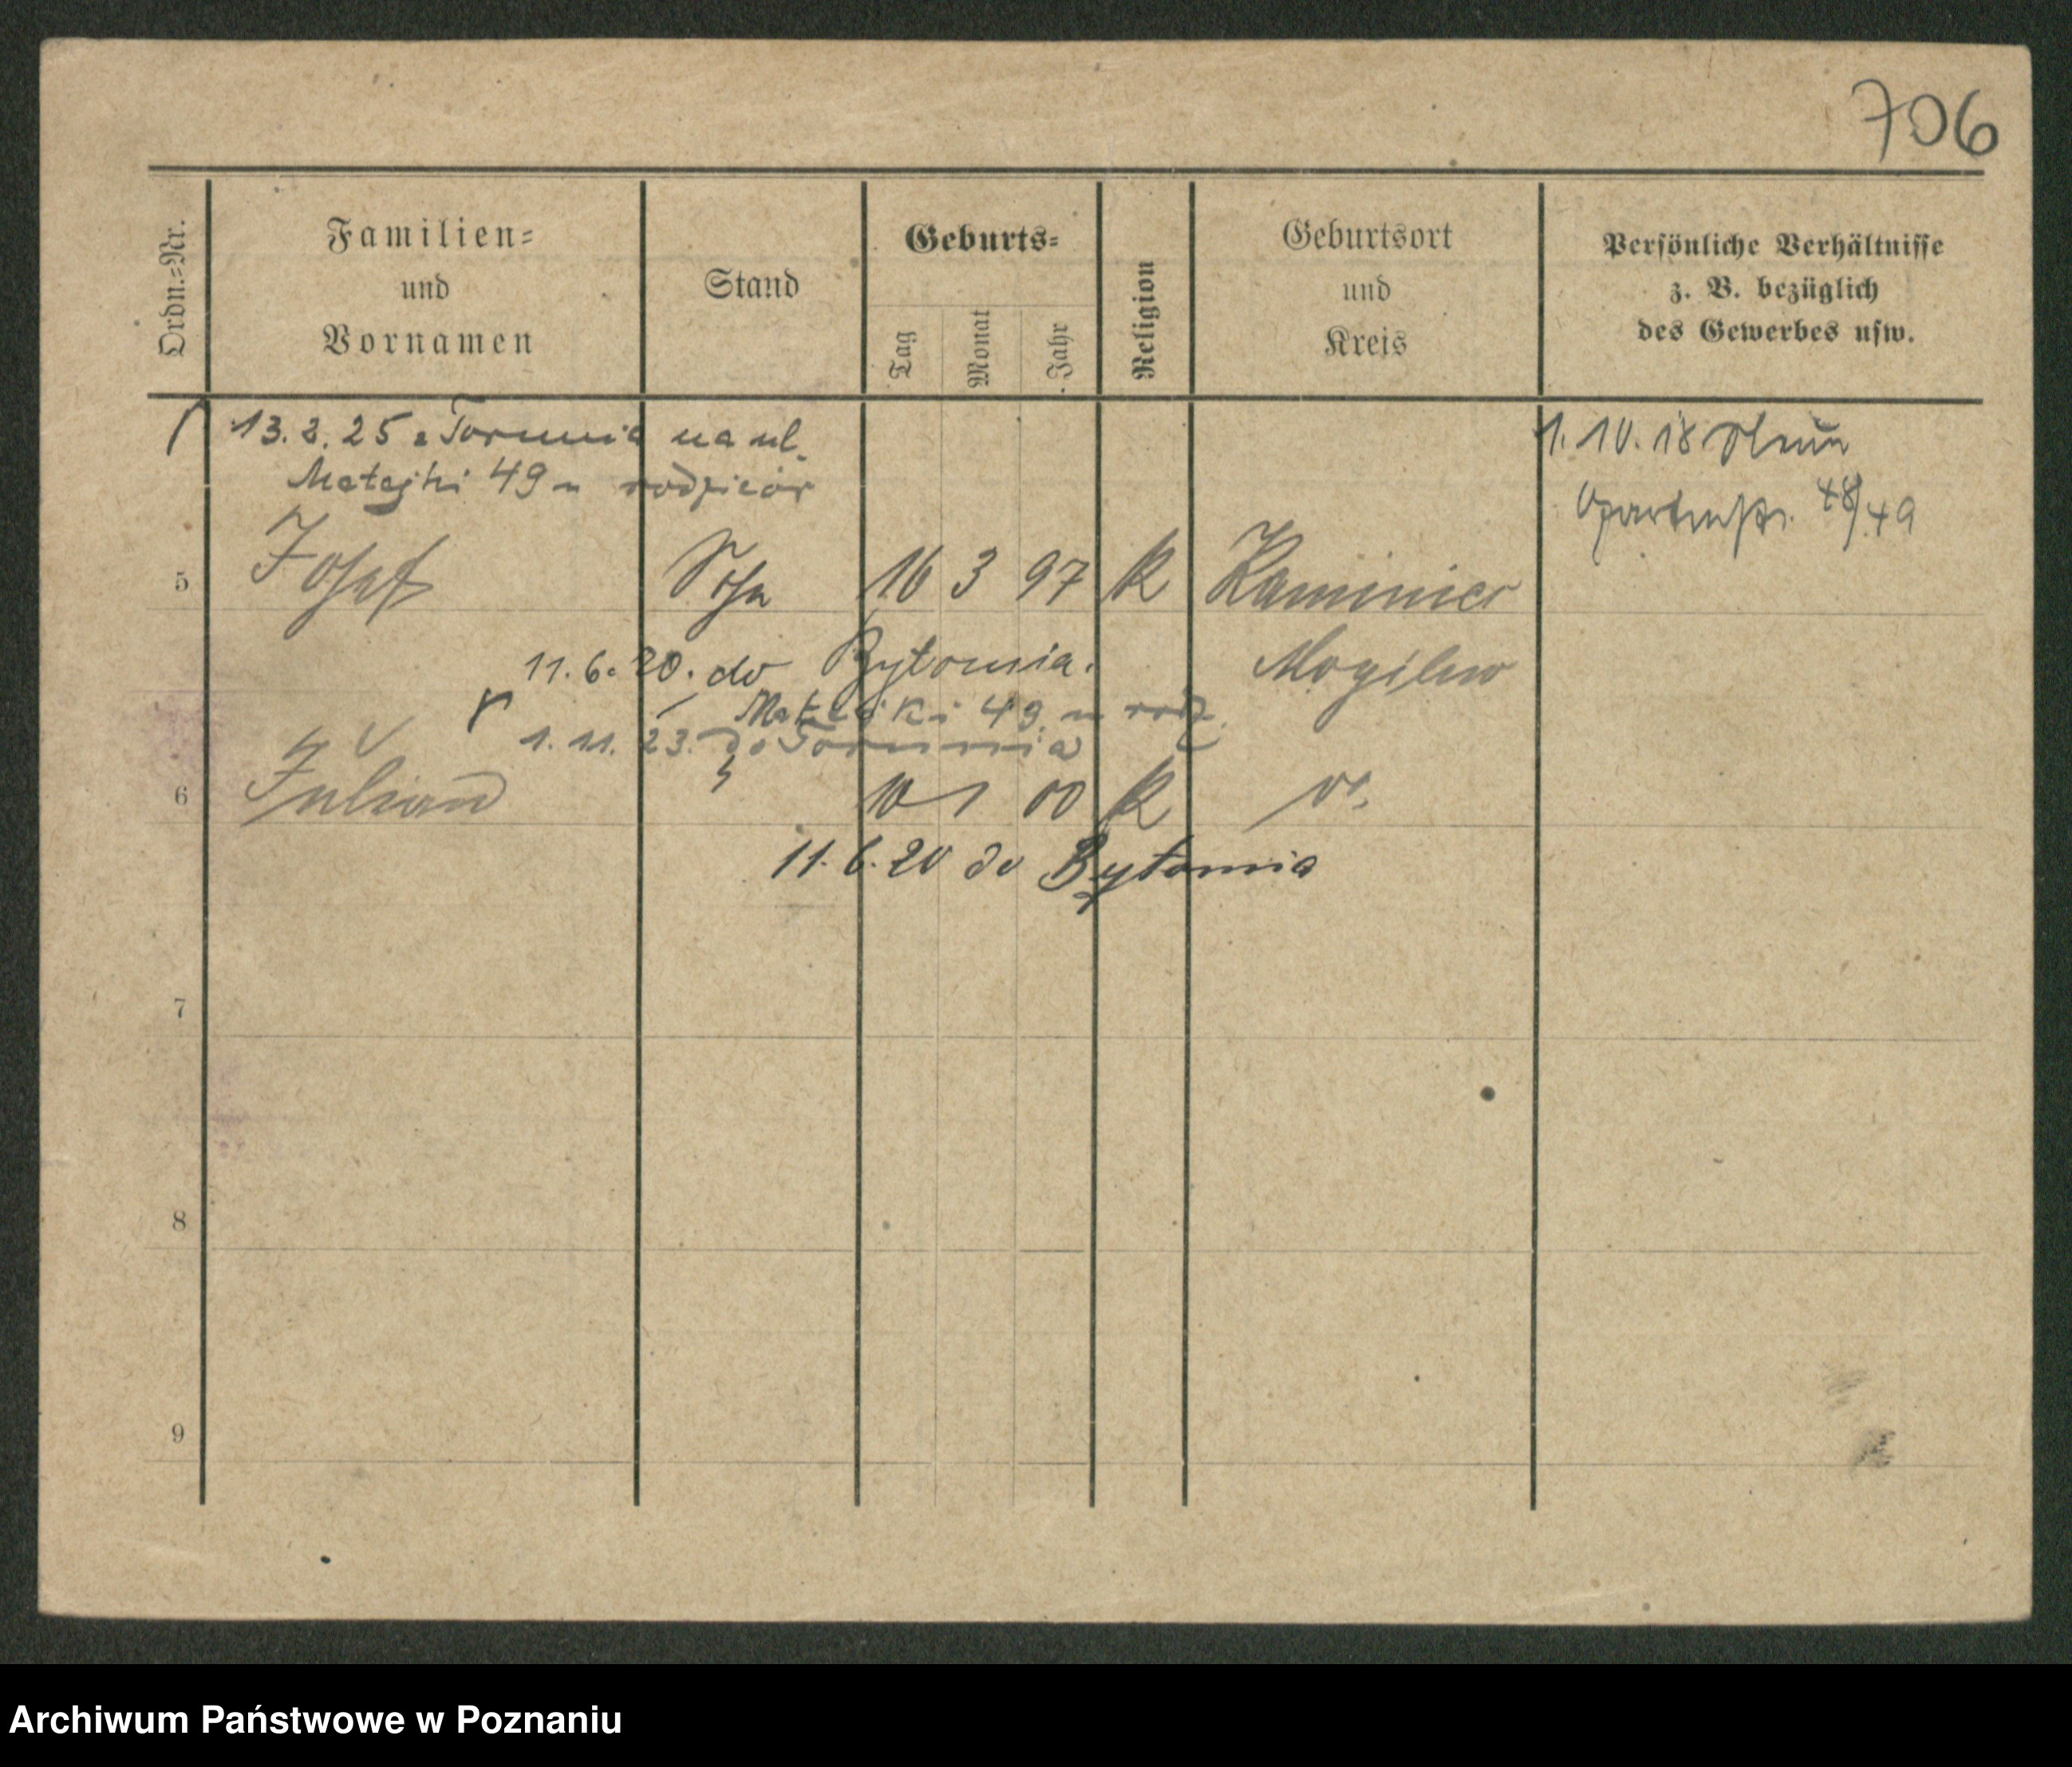 706
Ordn.=Nr.
Familien=
und
Vornamen
Stand
Geburts=
Tag
Monat
Jahr
Religion
Geburtsort
und
Kreis
Persönliche Verhältnisse
z. B. bezüglich
des Gewerbes usw.
13.2.25 z Torunia na ul.
Matejki 49 u rodziców
1.10.18
48/49
5 Josef Sohn 16 3 97 K Kaminiec
11.6.20. do Bytomia. Mogilno
Matejki 49 u rodz.
1.11.23. do Torunia
6 Julian 10 1 00 K
11.6.20 do Bytomia
7
8
9
Archiwum Państwowe w Poznaniu